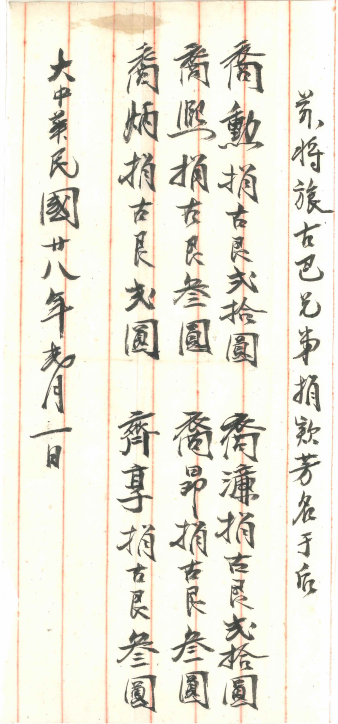 茲将旅古巴兄弟捐款芳名于后
裔勳捐古艮弍拾圓
裔濂捐古艮弍拾圓
裔熙捐古艮叄圓
裔昂捐古艮叄圓
裔炳捐古艮弍圓
齊享捐古艮叄圓
大中華民國廿八年元月一日